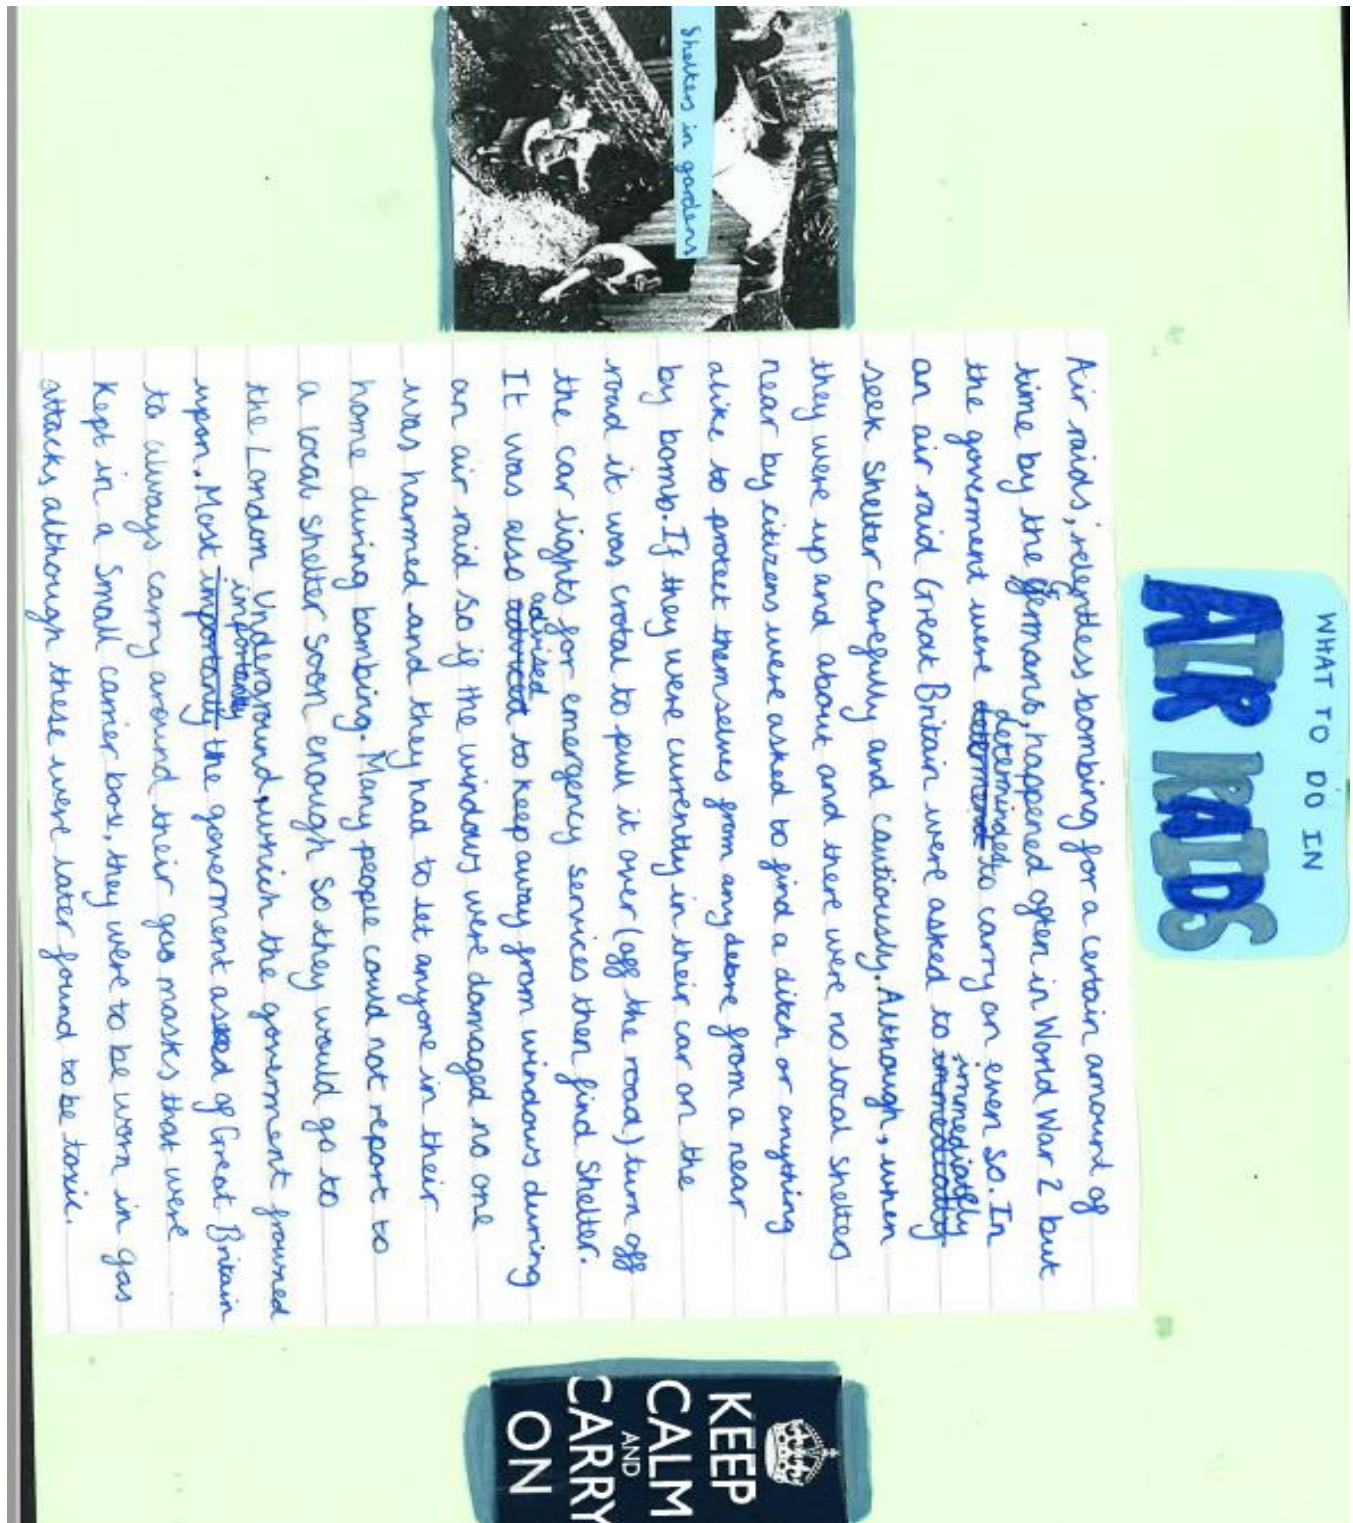 WHAT TO DO IN
AIR RAIDS
Shelters in gardens
Air raids, relentless bombing for a certain amound of
time by the Germans, happened often in World War 2 but
the goverment were determinded to carry on even so. In
an air raid Great Britain were asked to immediatly
seek shelter carefully and cautiously. Although, when
they were up and about and there were no local shelters
near by citizens were asked to find a ditch or anything
alike to protect themselves from any debre from a near
by bomb. If they were currently in their car on the
road it was crotal to pull it over (off the road) turn off
the car lights for emergency services then find shelter.
It was also advised to keep away from windows during
an air raid so if the windows were damaged no one
was harmed and they had to let anyone in their
home during bombing. Many people could not report to
a local shelter soon enough so they would go to
the London Underground, which the goverment frowned
upon. Most importantly the goverment asked of Great Britain
to always carry around their gas masks that were
Kept in a small carrier box, they were to be worn in gas
attacks although these were later found to be toxic.
KEEP
CALM
AND
CARRY
ON